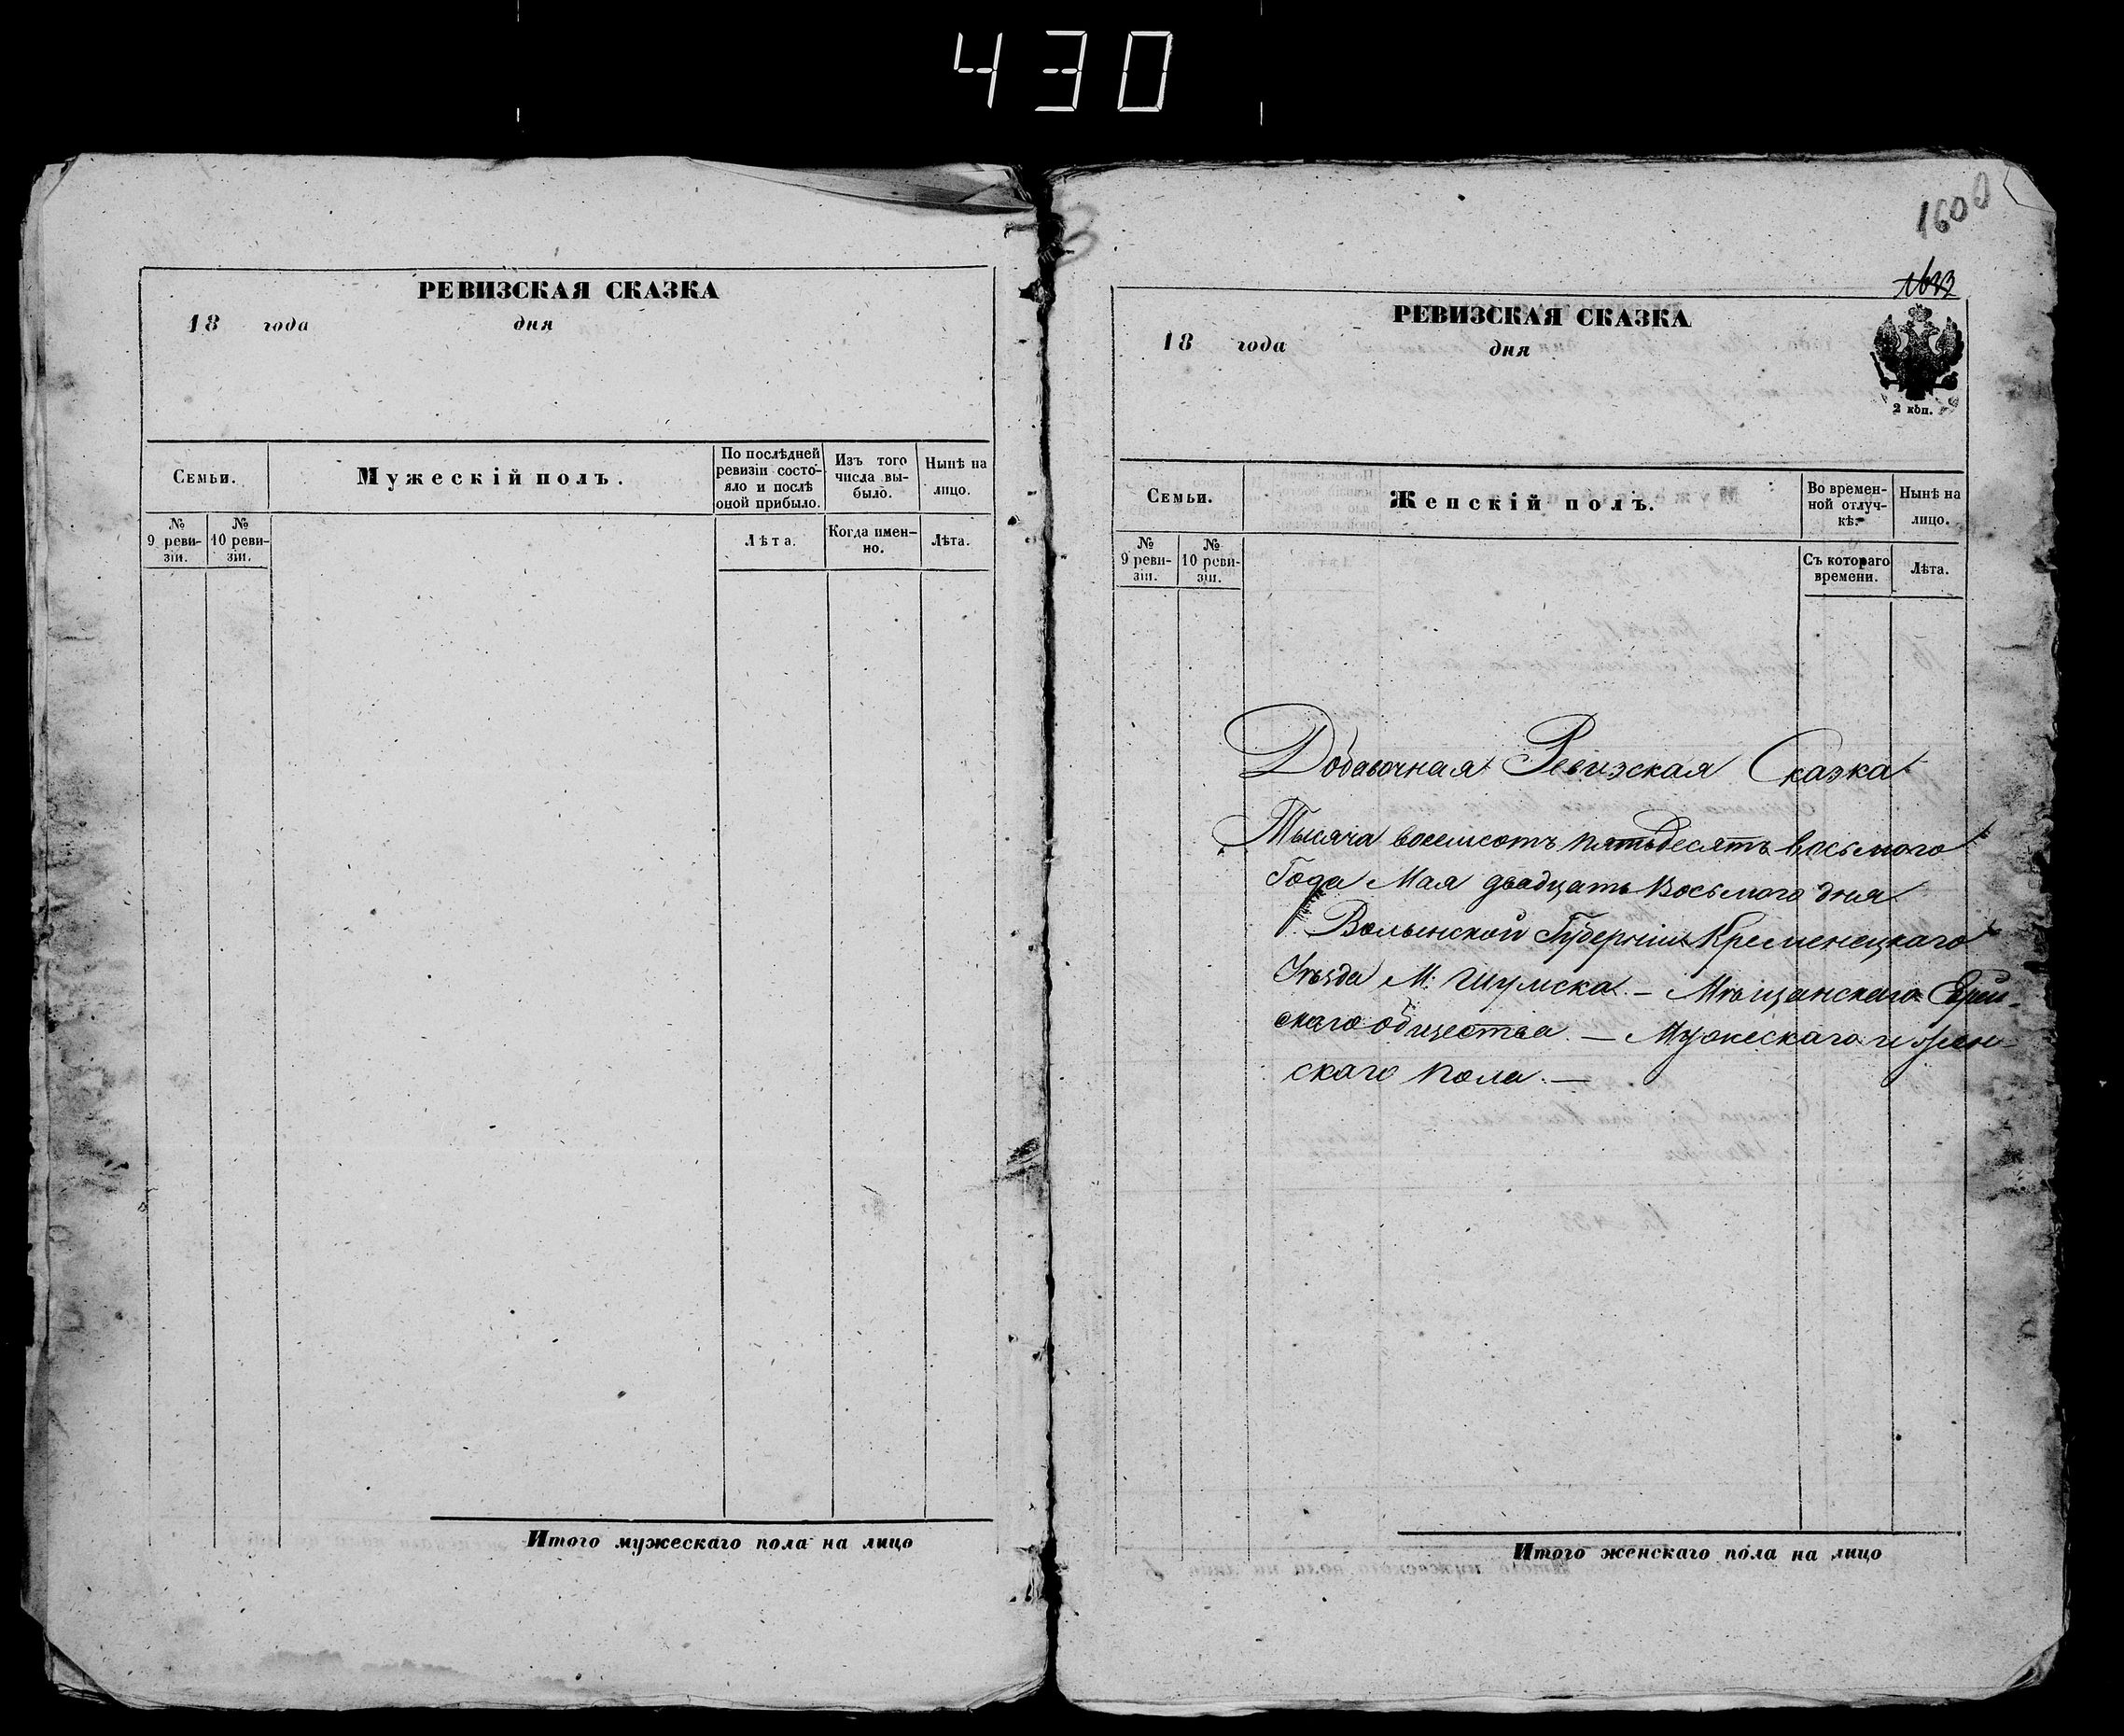 430
РЕВИЗСКАЯ СКАЗКА
18 года дня
Семьи.
Мужескій полъ.
По послѣдней ревизіи состо-
яло и послѣ оной прибыло.
Изъ того числа вы-
было.
Нынѣ на лицо.
№ 9 реви-
зіи.
№ 10 реви-
зіи.
Лѣта.
Когда имен-
но.
Лѣта.
Итого мужескаго пола на лицо
1600
РЕВИЗСКАЯ СКАЗКА
18 года дня
2 коп.
Семьи.
Женскій полъ.
Во времен-
ной отлуч-
кѣ.
Нынѣ на лицо.
№ 9 реви-
зіи.
№ 10 реви-
зіи.
Съ котораго времени.
Лѣта.
Добавочная Ревизская Сказка
Тысяча восемсотъ пятьдесятъ восьмого
Года Мая двадцать восьмого дня
Волынской Губерніи Кременецкаго
Уѣзда М. Шумска – Мѣщанскаго Еврей-
скаго общества. – Мужескаго и жен-
скаго пола. –
Итого женскаго пола на лицо